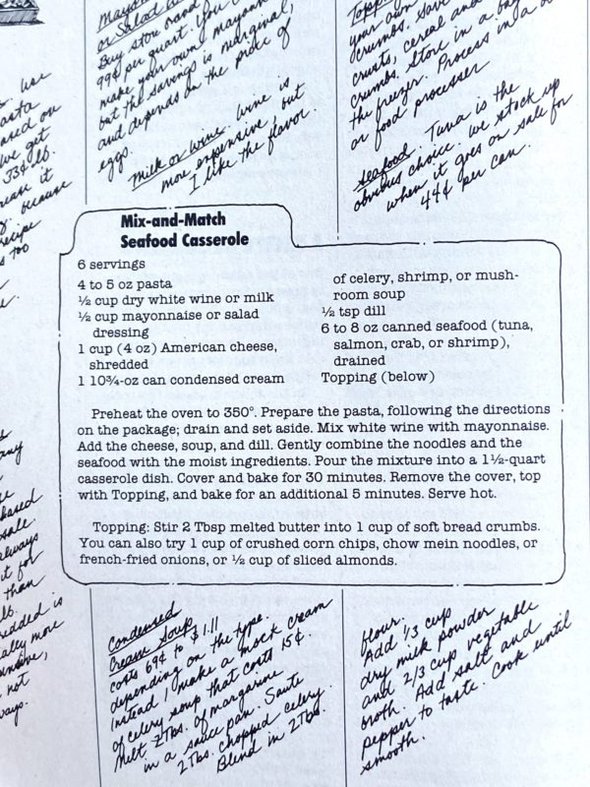 Use
asta
ased on
we get
33¢ lb.
because
ecipe
s too
or Salad
Buy store brand
99¢ per quart. You
make your own
but the savings is marginal,
and depends on the price of
eggs.
Milk or Wine. Wine is
more expensive, but
I like the flavor.
your own
crumbs. Save
crusts, cereal and
crumbs. Store in a bag
the freezer. Process in a
or food processer
Seafood. Tuna is the
obvious choice. We stock up
when it goes on sale for
44¢ per can.
Mix-and-Match
Seafood Casserole
6 servings
4 to 5 oz pasta
½ cup dry white wine or milk
½ cup mayonnaise or salad
dressing
1 cup (4 oz) American cheese,
shredded
1 10¾-oz can condensed cream
of celery, shrimp, or mush-
room soup
½ tsp dill
6 to 8 oz canned seafood (tuna,
salmon, crab, or shrimp),
drained
Topping (below)
Preheat the oven to 350°. Prepare the pasta, following the directions
on the package; drain and set aside. Mix white wine with mayonnaise.
Add the cheese, soup, and dill. Gently combine the noodles and the
seafood with the moist ingredients. Pour the mixture into a 1½-quart
casserole dish. Cover and bake for 30 minutes. Remove the cover, top
with Topping, and bake for an additional 5 minutes. Serve hot.
Topping: Stir 2 Tbsp melted butter into 1 cup of soft bread crumbs.
You can also try 1 cup of crushed corn chips, chow mein noodles, or
french-fried onions, or ½ cup of sliced almonds.
any
based
sale.
always
it for
than
lb.
edded is
ally more
ensive,
not
ways.
Condensed
Cream Soup
costs 69¢ to $1.11
depending on the type.
Instead I make a mock cream
of celery soup that costs 15¢.
Melt 2 Tbs. of margarine
in a sauce pan. Saute
2 Tbs. chopped celery.
Blend in 2 Tbs.
flour.
Add 1/3 cup
dry milk powder
and 2/3 cup vegetable
broth. Add salt and
pepper to taste. Cook until
smooth.